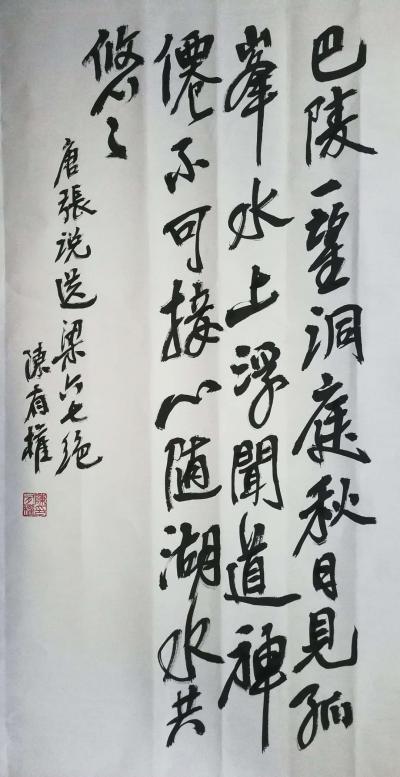 巴陵一望洞庭秋日見孤
峯水上浮聞道神
僊不可接心随湖水共
悠々
唐張说送梁六七绝
陳有權